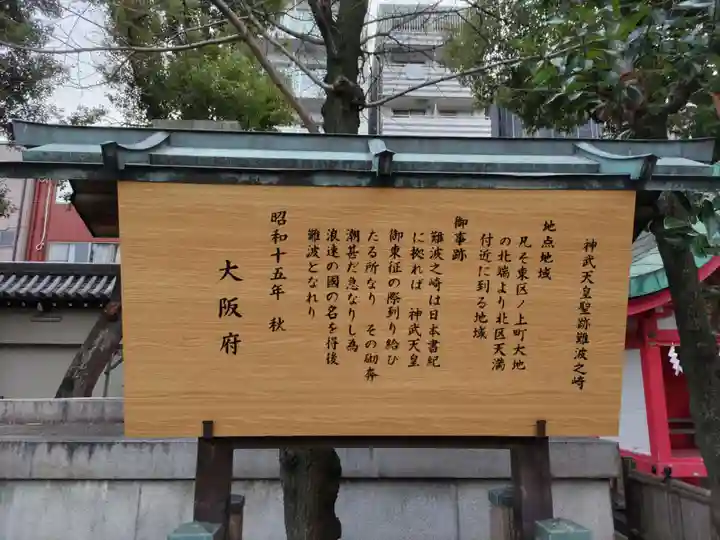 神武天皇聖跡難波之碕
地点地域
兄そ東区ノ上町大地
の北端より北区天満
付近に到る地域
御事跡
難波之碕は日本書紀
に拠れば 神武天皇
御東征の際到り給ひ
たる所なり その砌奔
潮甚だ急なりし為
浪速の國の名を得後
難波となれり
昭和十五年 秋
大阪府